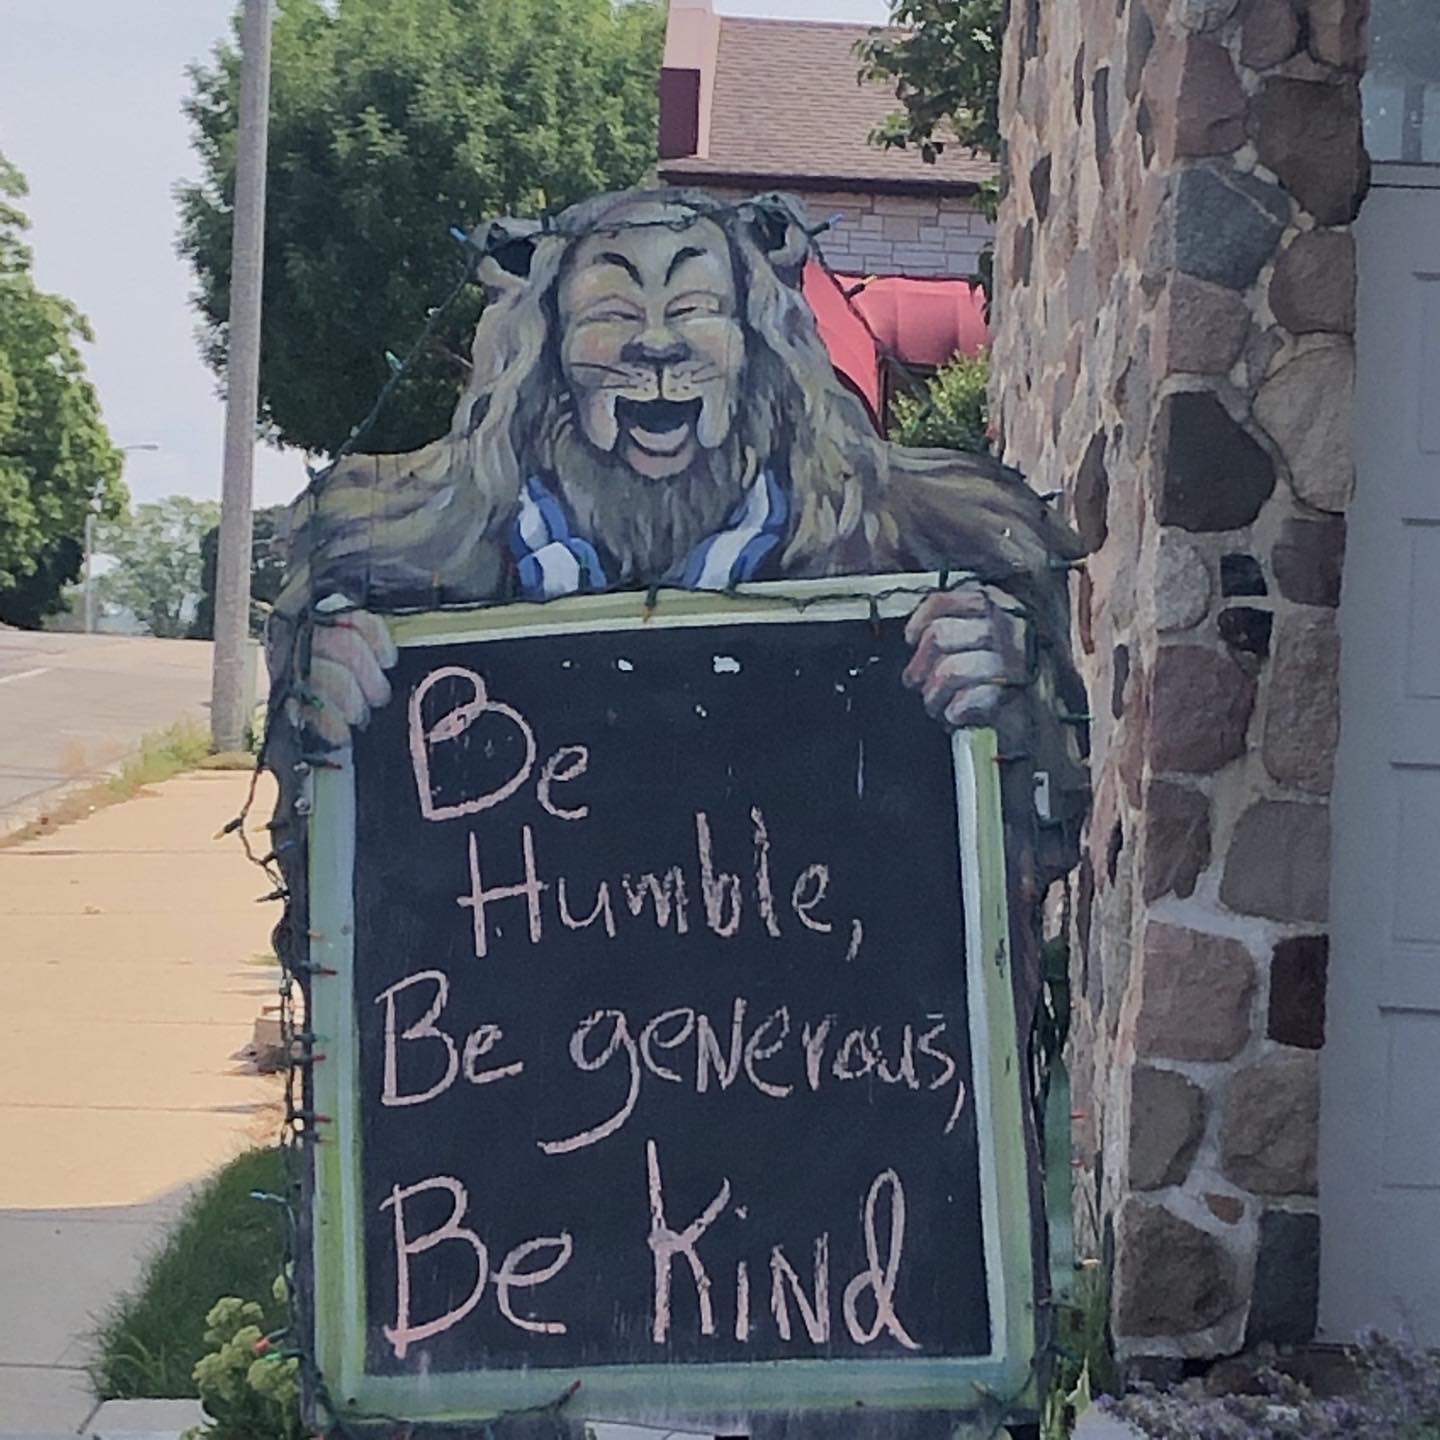 Be
Humble,
Be generous,
Be Kind